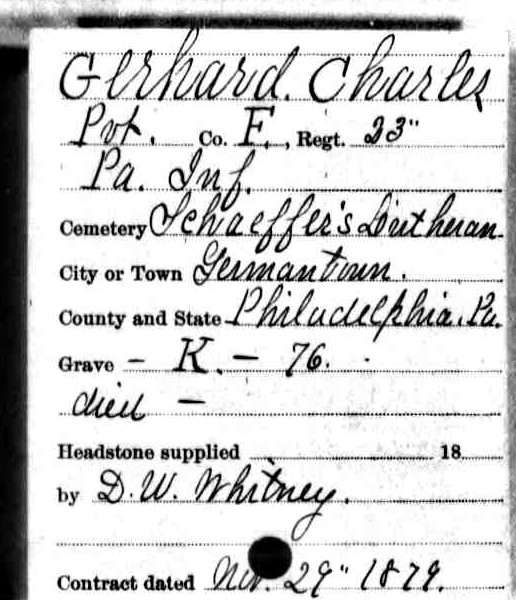 Gerhard. Charles
Pvt. Co. F., Regt. 23"
Pa. Inf.
Cemetery Schaeffer's Lutheran
City or Town Germantown.
County and State Philadelphia. Pa.
Grave – K. – 76.
died –
Headstone supplied 18
by D. W. Whitney.
Contract dated Nov. 29" 1879.